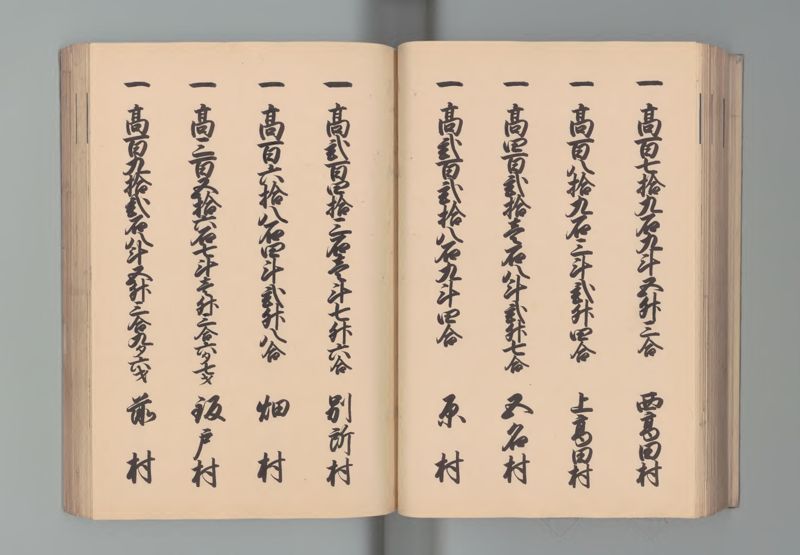 一 高百七拾九石九斗五升三合 西高田村
一 高百八拾九石三斗弐升四合 上高田村
一 高四百弐拾壱石八斗弐升七合 五名村
一 高弐百弐拾八石九斗四合 原村
一 高弐百四拾三石壱斗七升六合 別所村
一 高百六拾八石四斗弐升八合 畑村
一 高三百五拾六石七斗壱升三合六夕七才 坂戸村
一 高百九拾弐石八斗五升三合九夕六才 前村